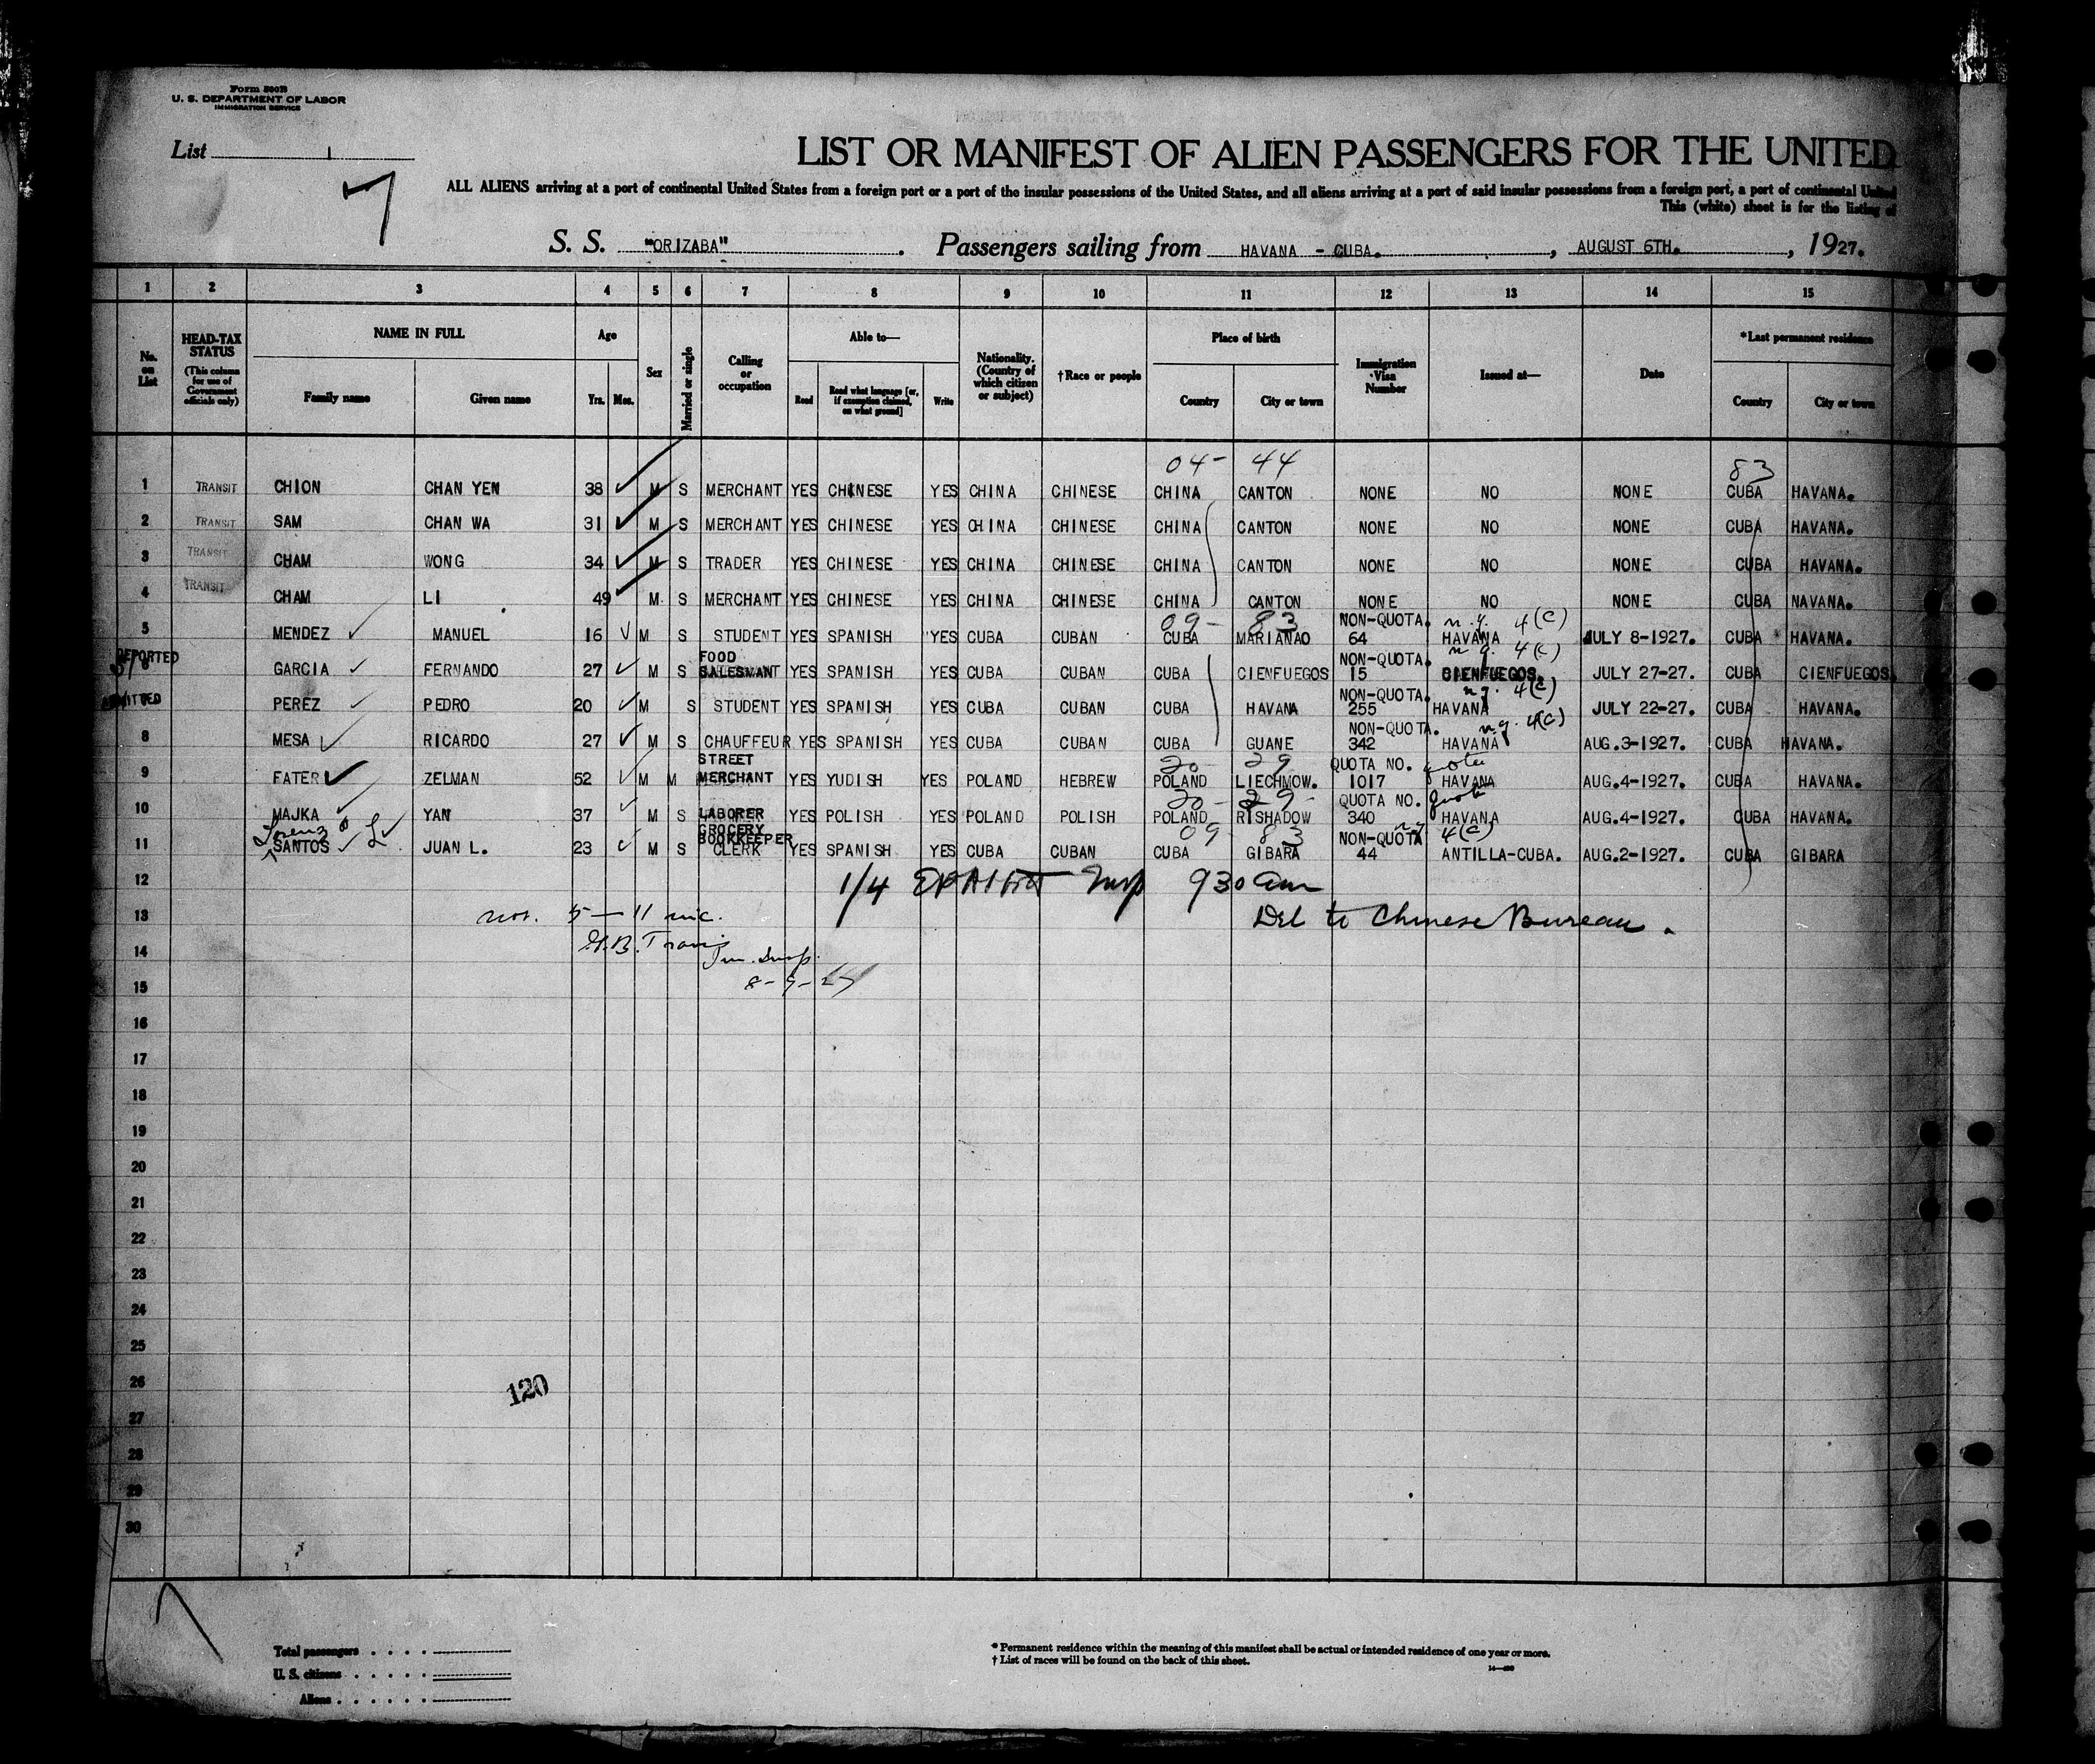 Form 500B
U. S. DEPARTMENT OF LABOR
IMMIGRATION SERVICE
List 1
7
LIST OR MANIFEST OF ALIEN PASSENGERS FOR THE UNITED
ALL ALIENS arriving at a port of continental United States from a foreign port or a port of the insular possessions of the United States, and all aliens arriving at a port of said insular possessions from a foreign port, a port of continental United
This (white) sheet is for the listing of
S. S. "ORIZABA". Passengers sailing from HAVANA - CUBA., AUGUST 6TH., 1927.
1 2 3 4 5 6 7 8 9 10 11 12 13 14 15
No. on List
HEAD-TAX STATUS (This column for use of Government officials only)
NAME IN FULL
Family name Given name
Age
Yrs. Mos.
Sex
Married or single
Calling or occupation
Able to—
Read Read what language [or, if exemption claimed, on what ground] Write
Nationality. (Country of which citizen or subject)
†Race or people
Place of birth
Country City or town
Immigration Visa Number
Issued at—
Date
*Last permanent residence
Country City or town
04- 44 83
1 TRANSIT CHION CHAN YEN 38 M S MERCHANT YES CHINESE YES CHINA CHINESE CHINA CANTON NONE NO NONE CUBA HAVANA.
2 TRANSIT SAM CHAN WA 31 M S MERCHANT YES CHINESE YES CHINA CHINESE CHINA CANTON NONE NO NONE CUBA HAVANA.
3 TRANSIT CHAM WONG 34 M S TRADER YES CHINESE YES CHINA CHINESE CHINA CANTON NONE NO NONE CUBA HAVANA.
4 TRANSIT CHAM LI 49 M S MERCHANT YES CHINESE YES CHINA CHINESE CHINA CANTON NONE NO NONE CUBA NAVANA.
09- 83 NON-QUOTA. n.q. 4(c)
5 MENDEZ MANUEL 16 M S STUDENT YES SPANISH YES CUBA CUBAN CUBA MARIANAO 64 HAVANA JULY 8-1927. CUBA HAVANA.
DEPORTED FOOD NON-QUOTA. n.q. 4(c)
6 GARCIA FERNANDO 27 M S SALESMAN YES SPANISH YES CUBA CUBAN CUBA CIENFUEGOS 15 CIENFUEGOS. JULY 27-27. CUBA CIENFUEGOS.
NON-QUOTA. n.q. 4(c)
ADMITTED PEREZ PEDRO 20 M S STUDENT YES SPANISH YES CUBA CUBAN CUBA HAVANA 255 HAVANA JULY 22-27. CUBA HAVANA.
NON-QUOTA. n.q. 4(c)
8 MESA RICARDO 27 M S CHAUFFEUR YES SPANISH YES CUBA CUBAN CUBA GUANE 342 HAVANA AUG.3-1927. CUBA HAVANA.
STREET 20- 29 QUOTA NO. quota
9 FATER ZELMAN 52 M M MERCHANT YES YUDISH YES POLAND HEBREW POLAND LIECHMOW. 1017 HAVANA AUG.4-1927. CUBA HAVANA.
20- 29- QUOTA NO. quota
10 MAJKA YAN 37 M S LABORER YES POLISH YES POLAND POLISH POLAND RISHADOW 340 HAVANA AUG.4-1927. CUBA HAVANA.
GROCERY BOOKKEEPER 09 83 NON-QUOTA nq 4(c)
11 SANTOS JUAN L. 23 M S CLERK YES SPANISH YES CUBA CUBAN CUBA GIBARA 44 ANTILLA-CUBA. AUG.2-1927. CUBA GIBARA
12 1/4 Insp 930 am
13 5-11 inc. Del to Chinese Bureau.
14 Travis Im. Insp.
15
16
17
18
19
20
21
22
23
24
25
26
120
27
28
29
30
Total passengers
U. S. citizens
Aliens
* Permanent residence within the meaning of this manifest shall be actual or intended residence of one year or more.
† List of races will be found on the back of this sheet.